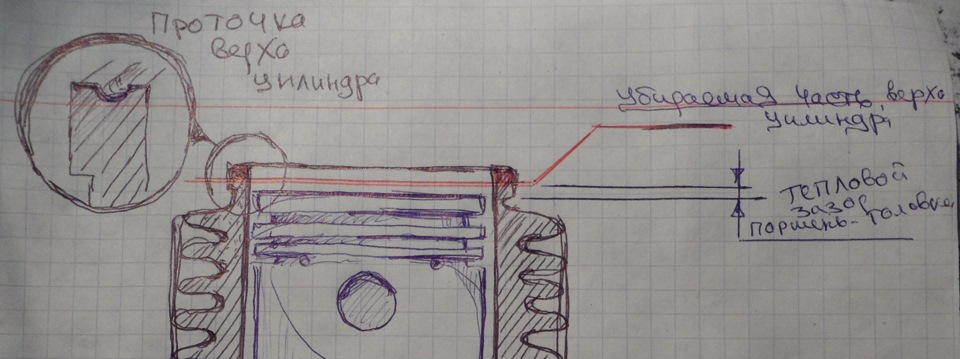 Проточка
верха
цилиндра
убираемая часть верха
цилиндра
тепловой
зазор
поршень-головка